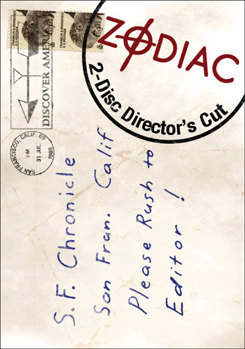 ZODIAC
2-Disc Director's Cut
DISCOVER AMERICA
SAN FRANCISCO, CALIF
PM
31 JUL
1969
S.F. Chronicle
San Fran. Calif
Please Rush to
Editor!